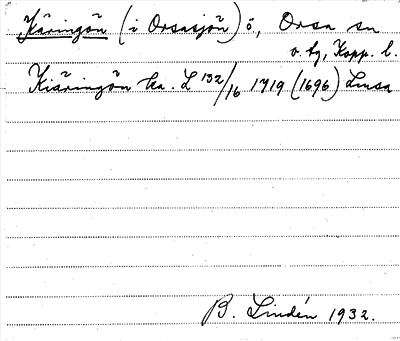 Käringön (i Orsasjön) ö, Orsa sn
v. bg, Kopp. l.
Kiäringön ka. L 132/16 1719 (1696) Lmsa
B. Lindén 1932.